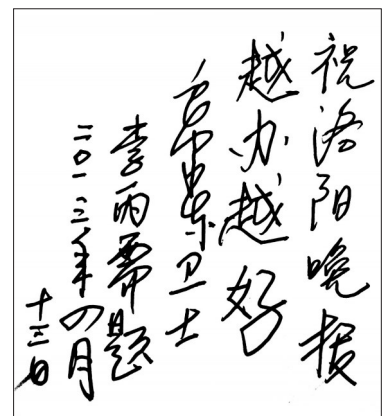 祝洛阳晚报
越办越好
东卫士
李丙题
二〇一三年四月
十三日